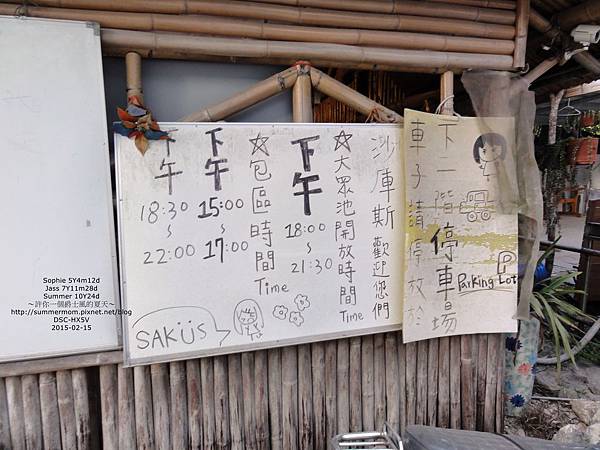 沙庫斯歡迎您們
☆大眾池開放時間 Time
下午
18:00
~
21:30
☆包區時間 Time
下午
15:00
~
17:00
下午
18:30
~
22:00
SAKUS
車子請停放於
下一階停車場
P
Parking Lot
Sophie 5Y4m12d
Jass 7Y11m28d
Summer 10Y24d
~許你一個爵士風的夏天~
http://summermom.pixnet.net/blog
DSC-HX5V
2015-02-15